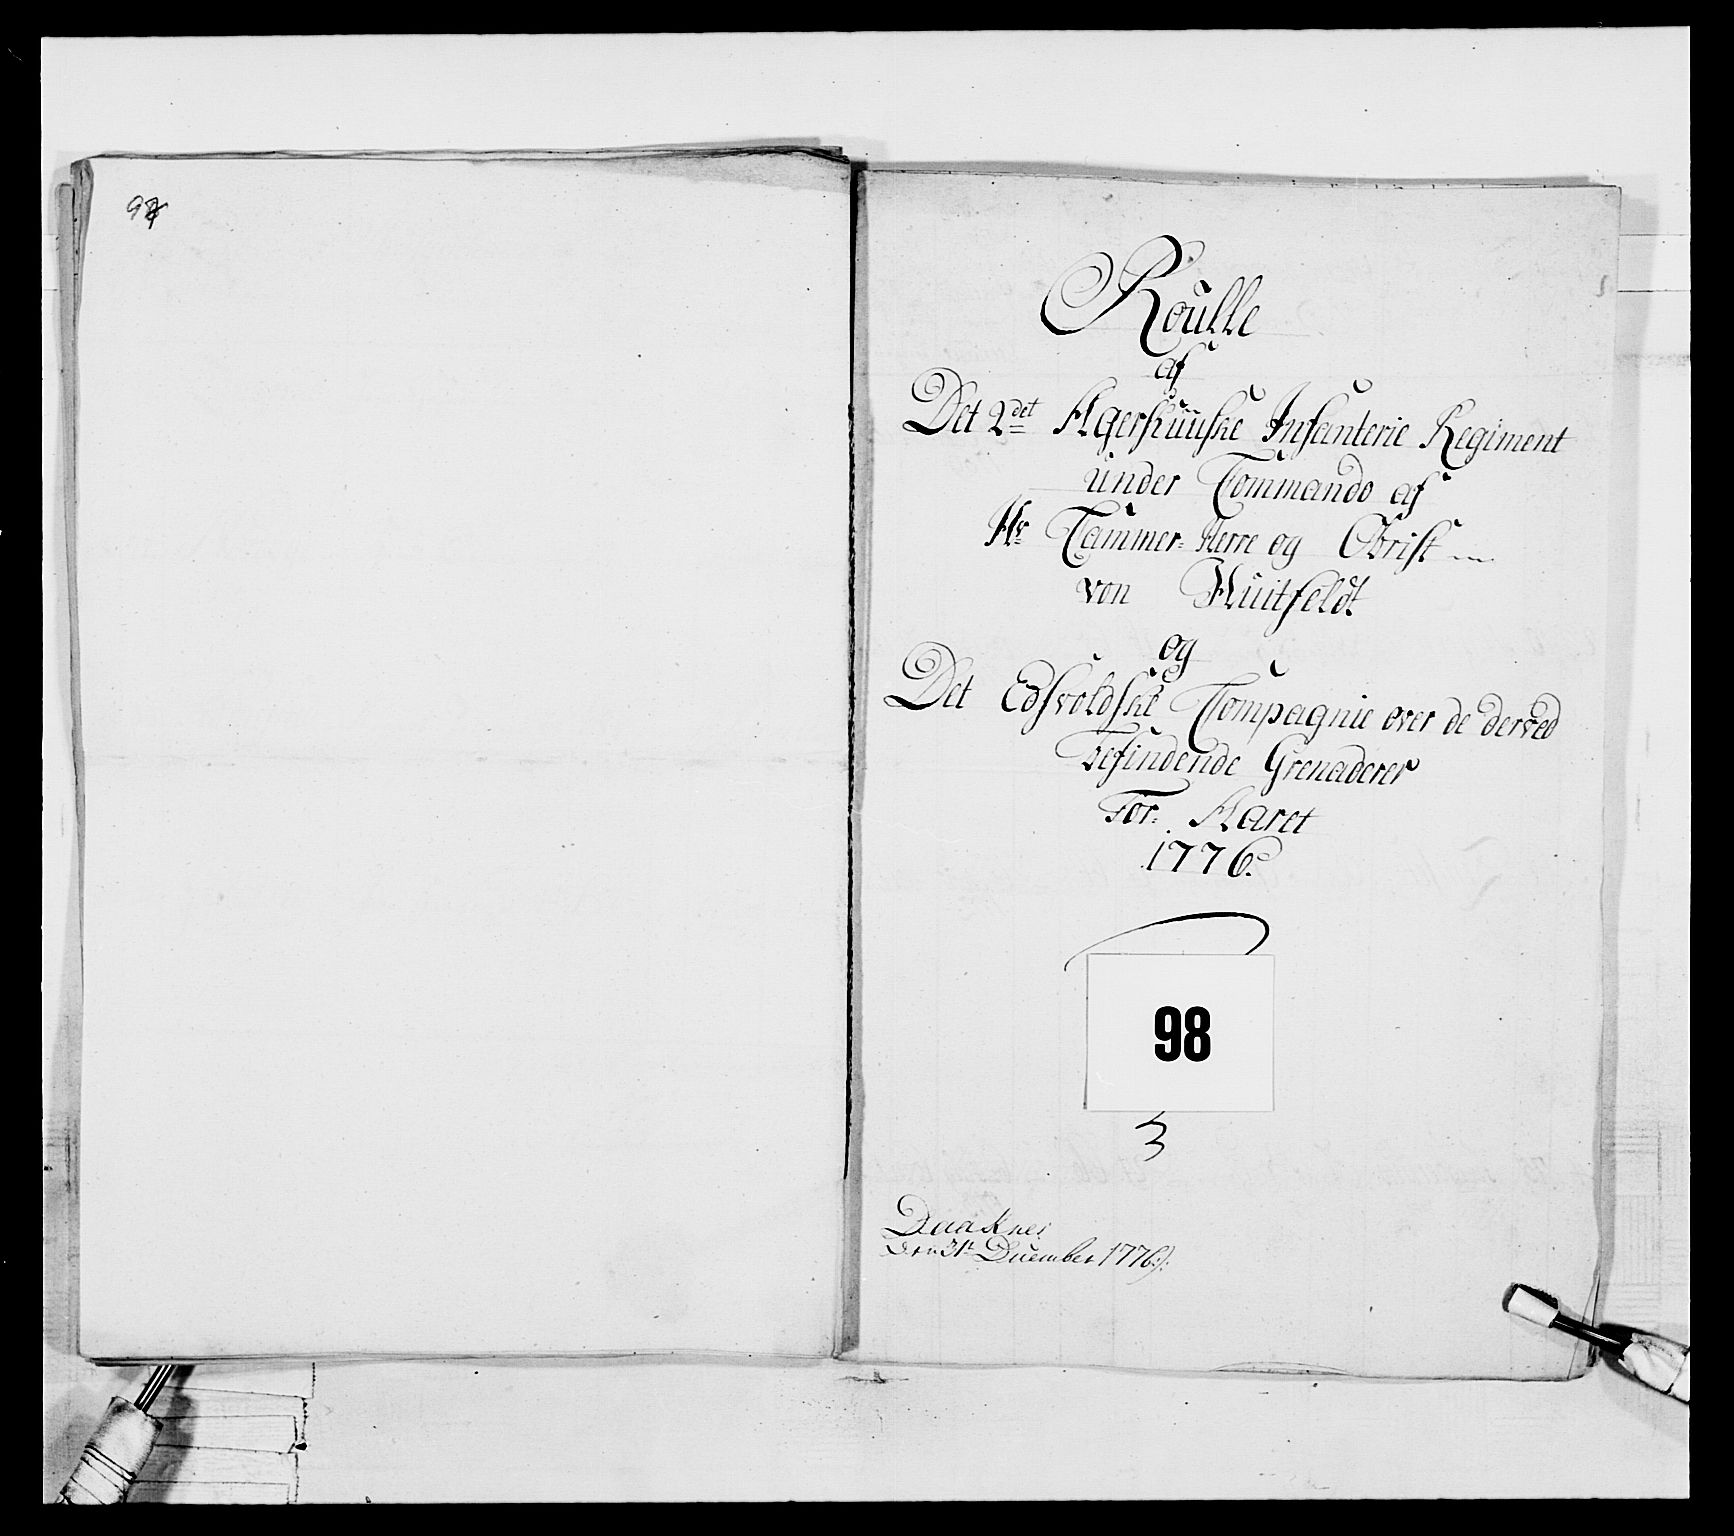 Roulle
af
Det 2det Agerhuuske Infanterie Regiment
under Commando af
Hr Cammer-Herre og Obrist
von Huitfeldt
og
Det Edsvoldske Compagnie over de derved
befindende Grenaderer
For Aaret
1776.
98
3
den 31te December 1776